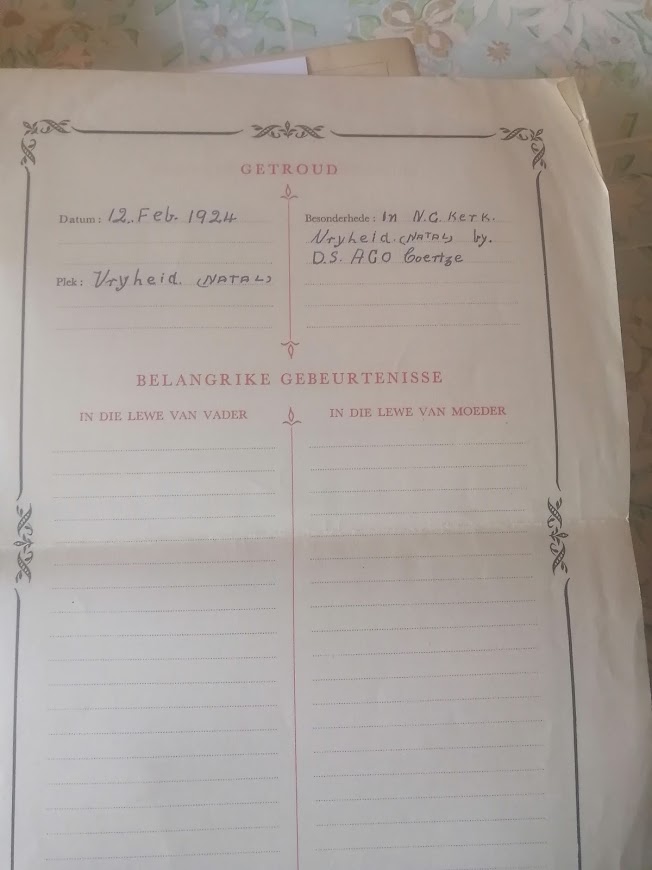 GETROUD
Datum: 12. Feb. 1924
Plek: Vryheid. (NATAL)
Besonderhede: In N.G. Kerk.
Vryheid. (NATAL) by.
D.S. AGO Coertze
BELANGRIKE GEBEURTENISSE
IN DIE LEWE VAN VADER
IN DIE LEWE VAN MOEDER